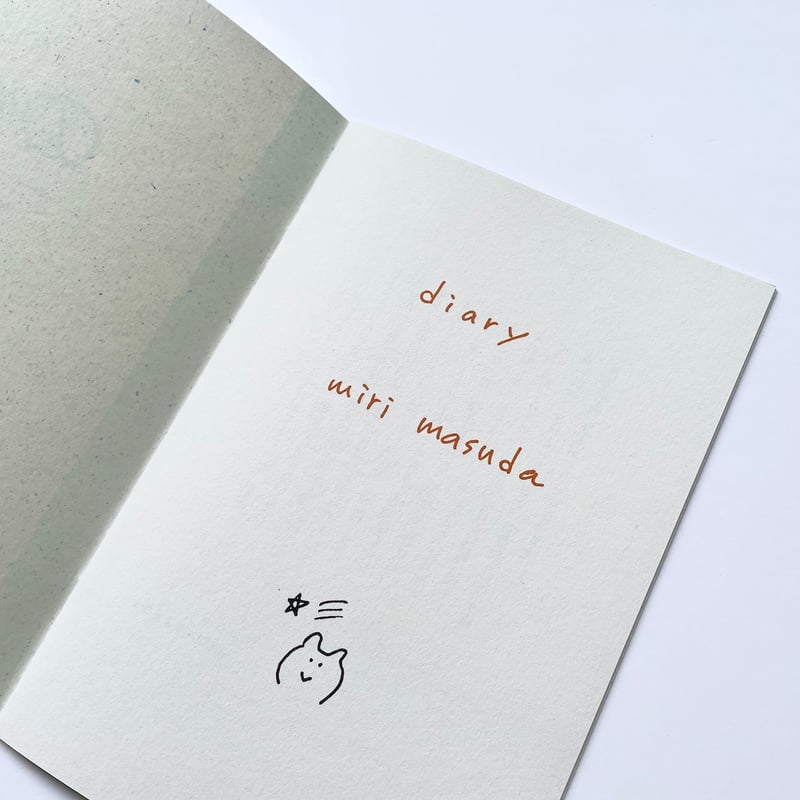 diary
miri masuda